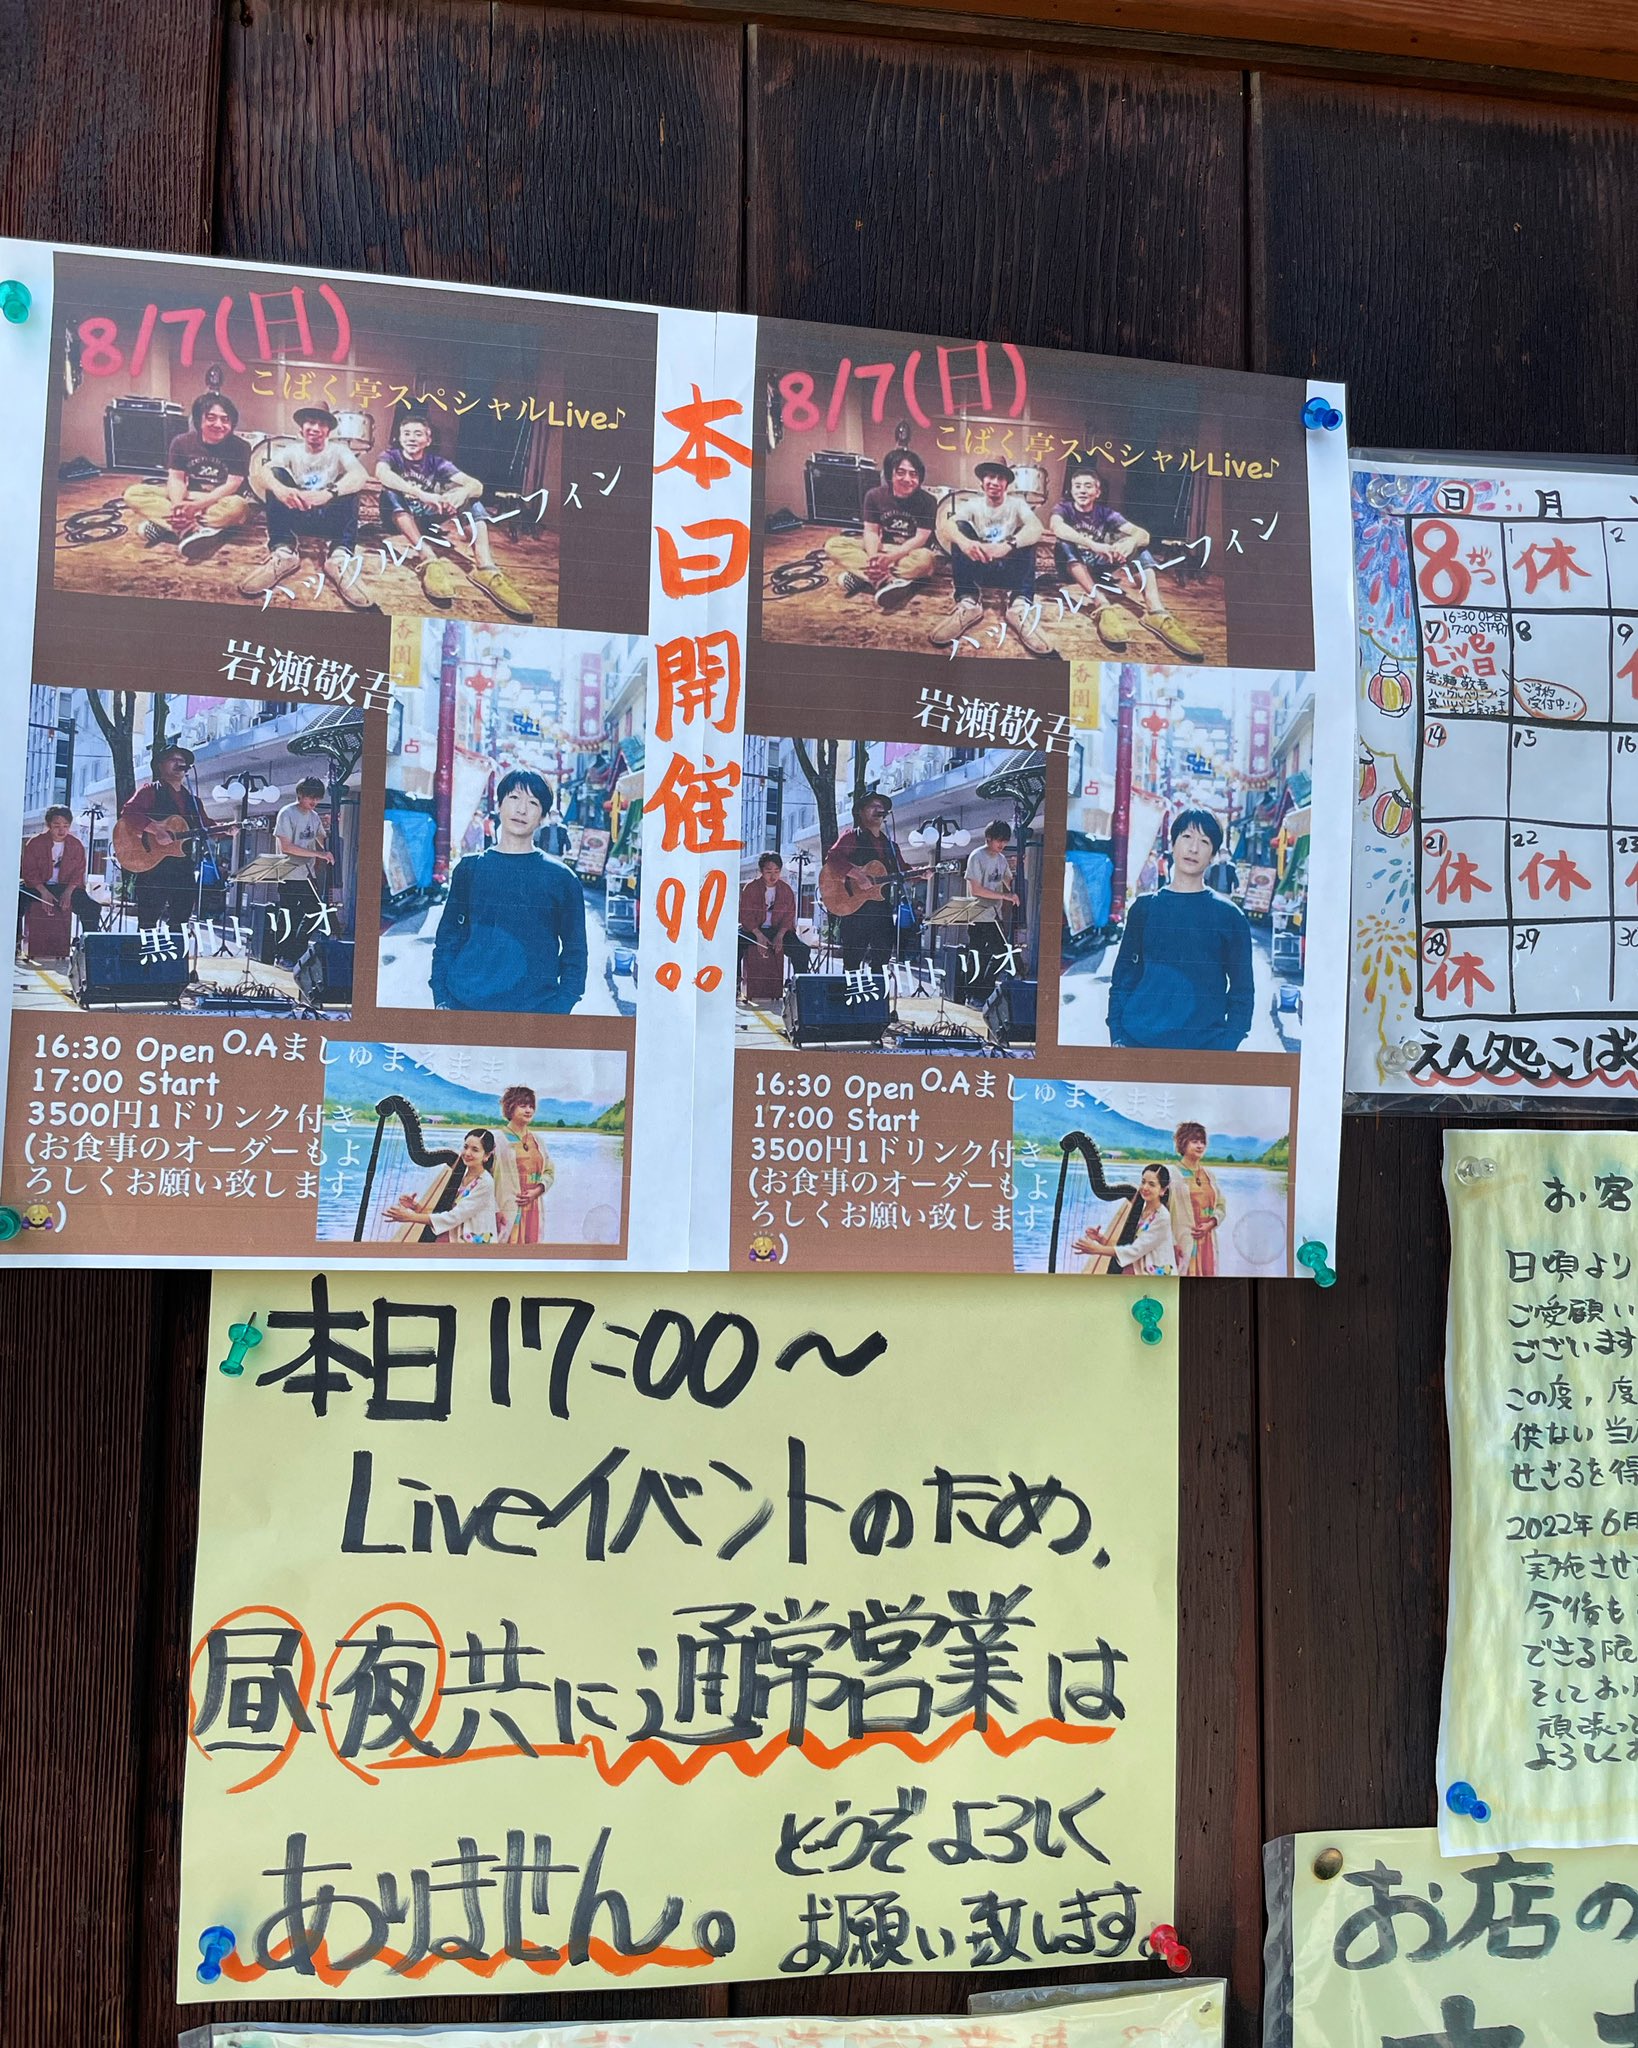 8/7(日)
こばく亭スペシャルLive♪
ハックルベリーフィン
岩瀬敬吾
黒川トリオ
16:30 Open O.Aましゅまろまま
17:00 Start
3500円1ドリンク付き
(お食事のオーダーもよ
ろしくお願い致します
🙇)
本日開催!!
8/7(日)
こばく亭スペシャルLive♪
ハックルベリーフィン
岩瀬敬吾
黒川トリオ
16:30 Open O.Aましゅまろまま
17:00 Start
3500円1ドリンク付き
(お食事のオーダーもよ
ろしくお願い致します
🙇)
本日17:00〜
Liveイベントのため、
昼・夜共に通常営業は
ありません。
どうぞよろしく
お願い致します。
日 月
8がつ 1 休 2
7 16:30 OPEN
17:00 START
Liveの日
岩瀬敬吾
ハックルベリーフィン
黒川バンド
ましゅまろまま
ご予約
受付中!!
8 9
14 15 16
21 休 22 休 23
28 休 29 30
えん処こばく
お客
日頃より
ご愛顧い
ございます
この度、度
供ない当
せざるを得
2022年6月
実施させ
今後も
できる限
そしてお
頑張っ
よろしくお
お店の